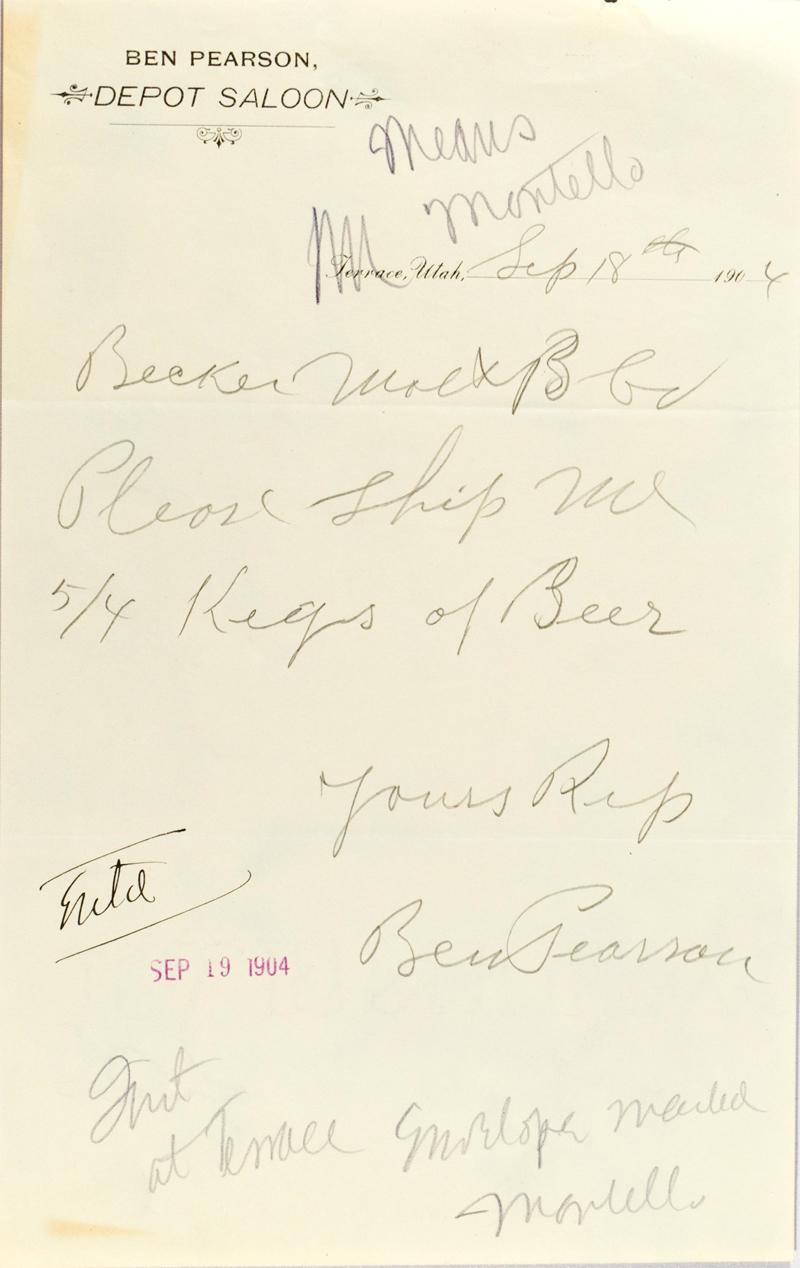 BEN PEARSON,
DEPOT SALOON
Means
Montello
Terrace, Utah, Sep 18th 1904
Becker Malt B Co
Please Ship Me
5/4 Kegs of Beer
Yours Resp
Ben Pearson
Entd
SEP 19 1904
at Terrace Envelope marked
Montello